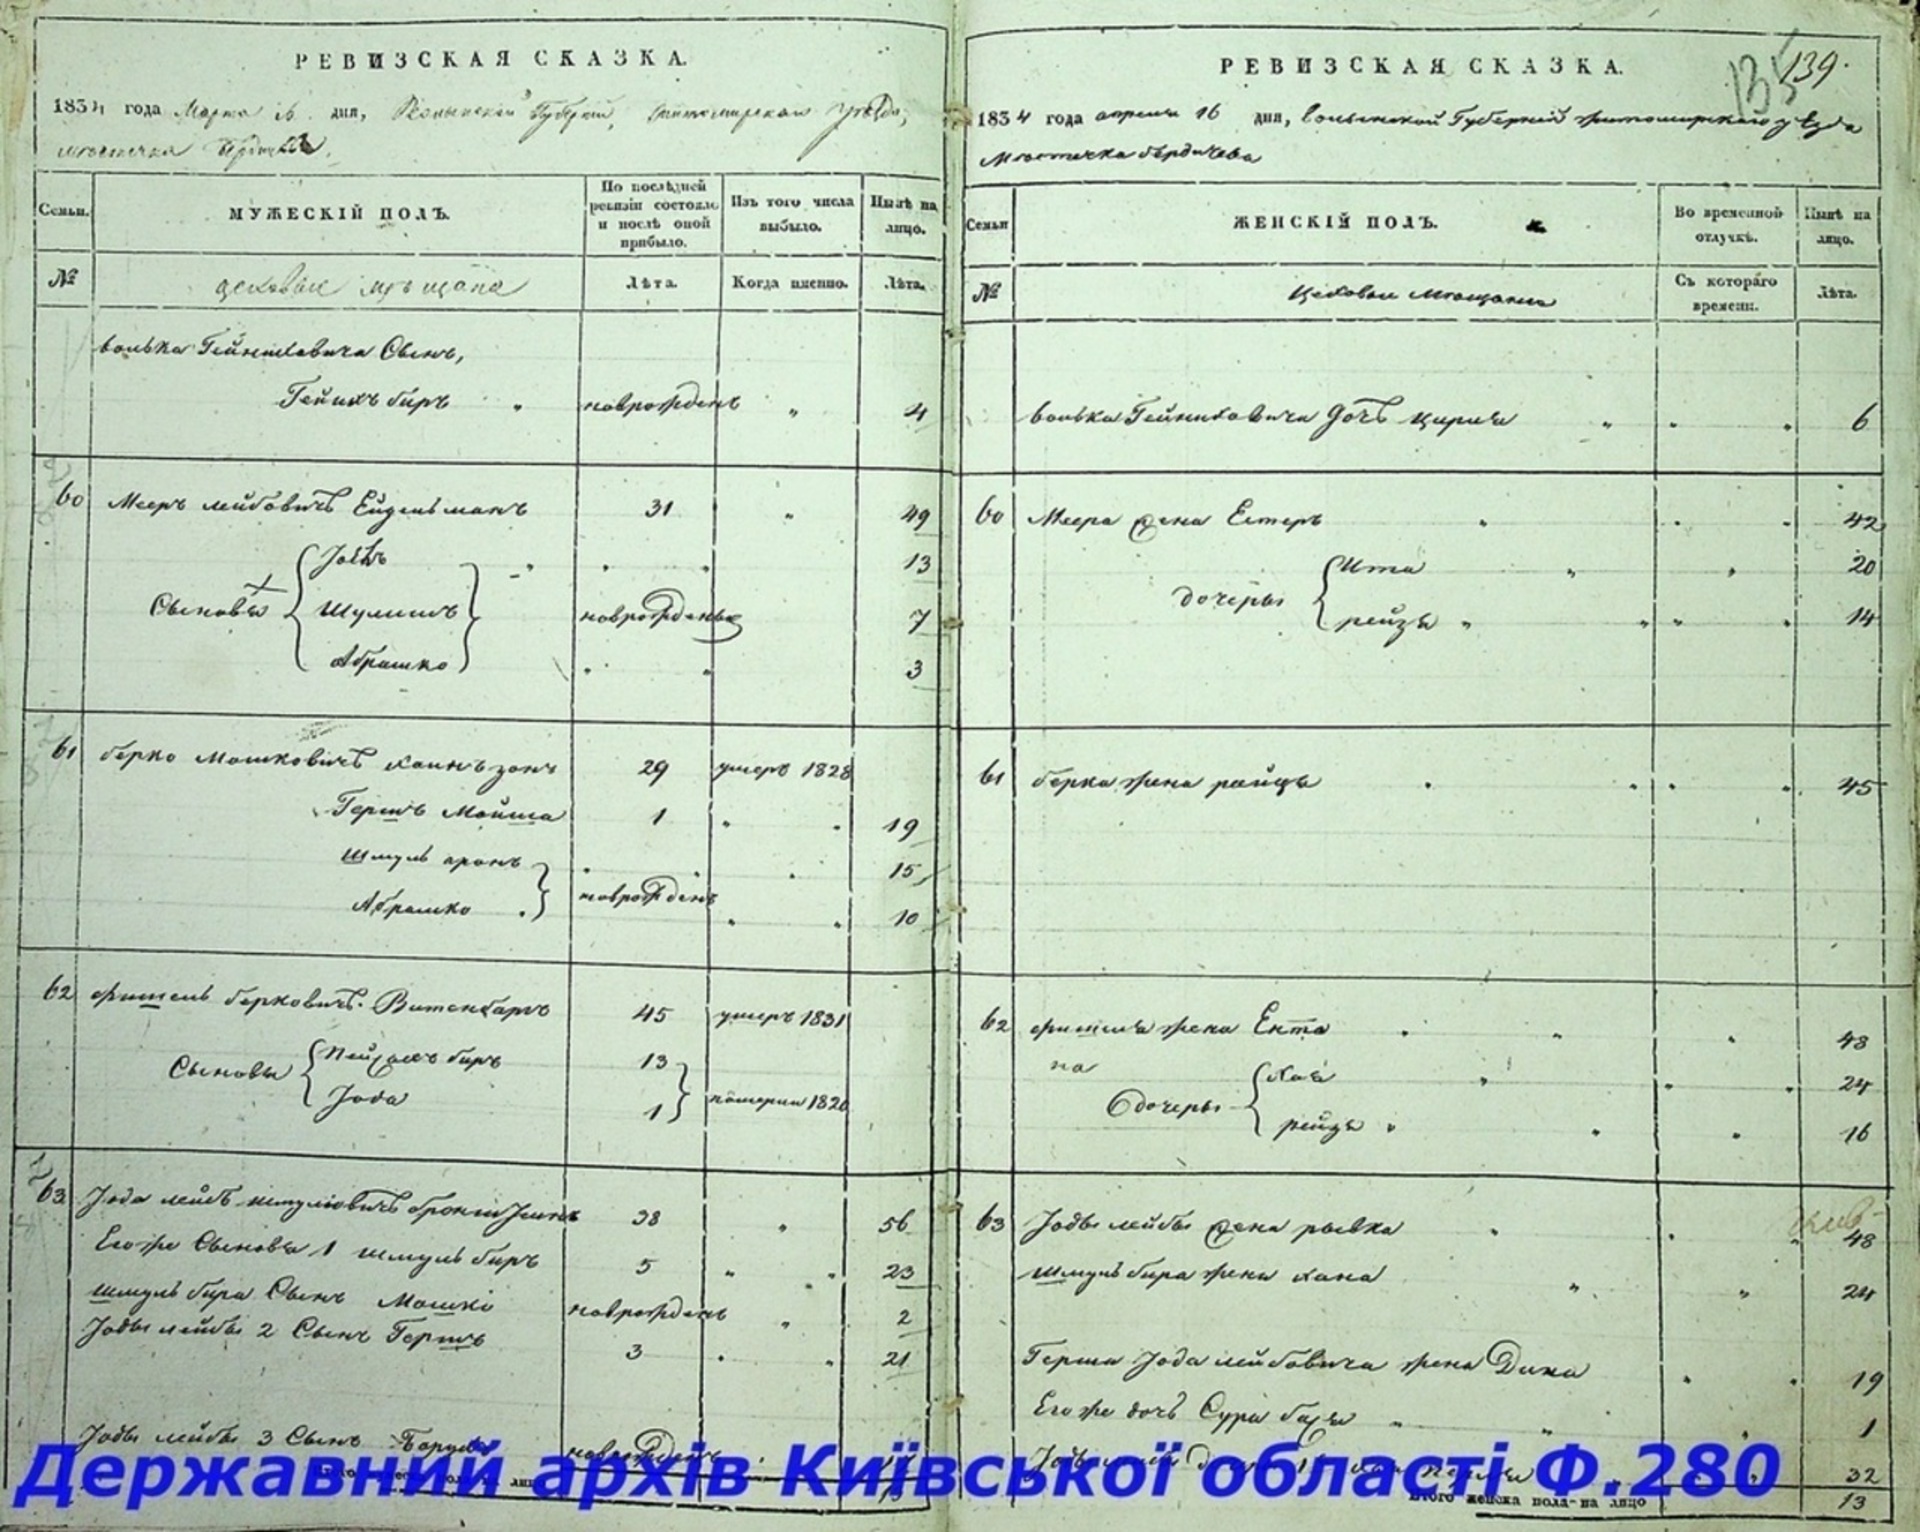 РЕВИЗСКАЯ СКАЗКА.
1834 года Марта 16 дня, Волынской Губернии, Житомирскаго уезда,
местечка Бердичева.
Семьи.
МУЖЕСКІЙ ПОЛЪ.
По послѣдней ревизіи состояло и послѣ оной прибыло.
Изъ того числа выбыло.
Нынѣ на лицо.
№
цеховые мещане
Лѣта.
Когда именно.
Лѣта.
волька Гейниховича Сынъ,
Гейнихъ биръ новорожденъ 4
60 Мееръ лейбовичъ Ейдельманъ 31 49
13
Сыновья Шулимъ новорожденые 7
Абрашко 3
61 берко Мошковичъ 29 умеръ 1828
Гершъ Мойша 1 19
Шмуль аронъ 15
новорожденъ
Абрашко 10
62 фишель берковичъ 45 умеръ 1831
Сыновья биръ 13
Іода 1 померли 1820
63 Іода лейбъ шмулiовичъ 38 56
Его же Сыновья 1 шмуль биръ 5 23
шмуль бира Сынъ Мошко новорожденъ 2
Іоды лейбы 2 Сынъ Гершъ 3 21
Іоды лейбы 3 Сынъ Борухъ новорожденъ
РЕВИЗСКАЯ СКАЗКА.
135 139.
1834 года апреля 16 дня, волынской Губерніи житомирскаго уезда
Местечка бердичева
Семьи
ЖЕНСКІЙ ПОЛЪ.
Во временной отлучкѣ.
Нынѣ на лицо.
№
Цеховые мещане
Съ котораго времени.
Лѣта.
волька Гейниховича дочь цирля 6
60 Меера жена Естеръ 42
Ита 20
дочеры
рейзя 14
61 берка жена рейзя 45
62 фишеля жена Ента 48
на
Хая 24
дочеры
рейзя 16
63 Іоды лейбы жена рывка 48
шмуль бира жена хана 24
Герша Іода лейбовича жена Дина 19
Его же дочь Сура бася 1
32
Итого женска пола на лицо 13
Державний архів Київської області Ф.280